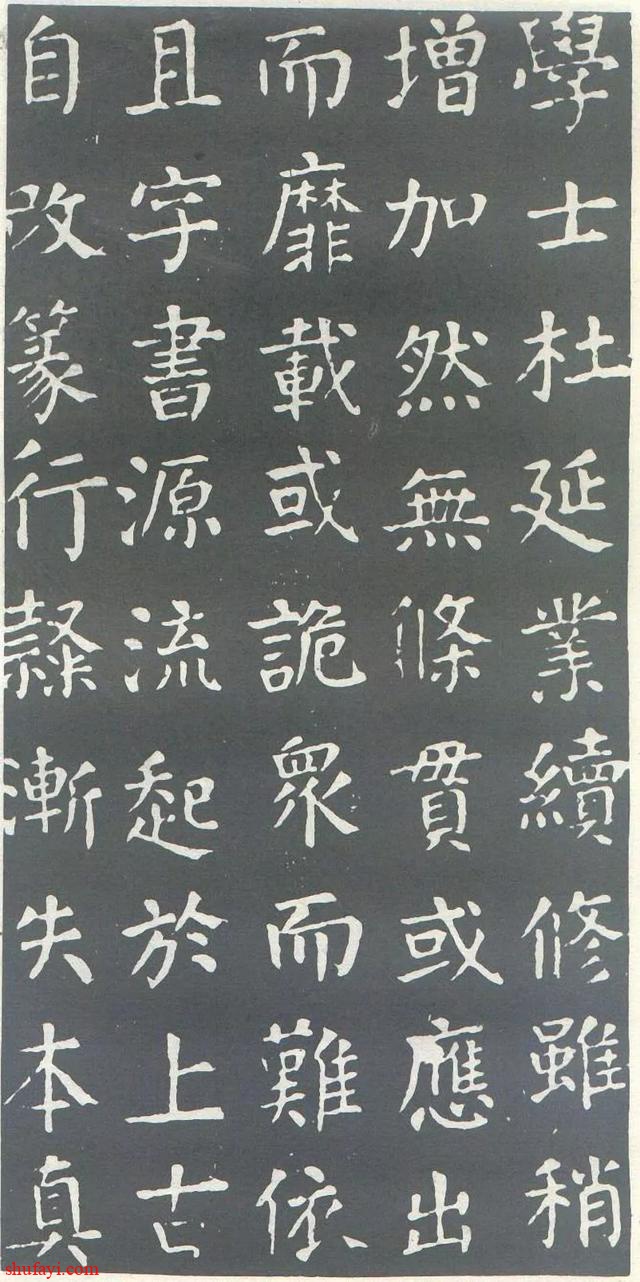 學士杜延業續修雖稍
增加然無條貫或應出
而靡載或詭眾而難依
且字書源流起於上古
自改篆行隸漸失本真
shufayi.com